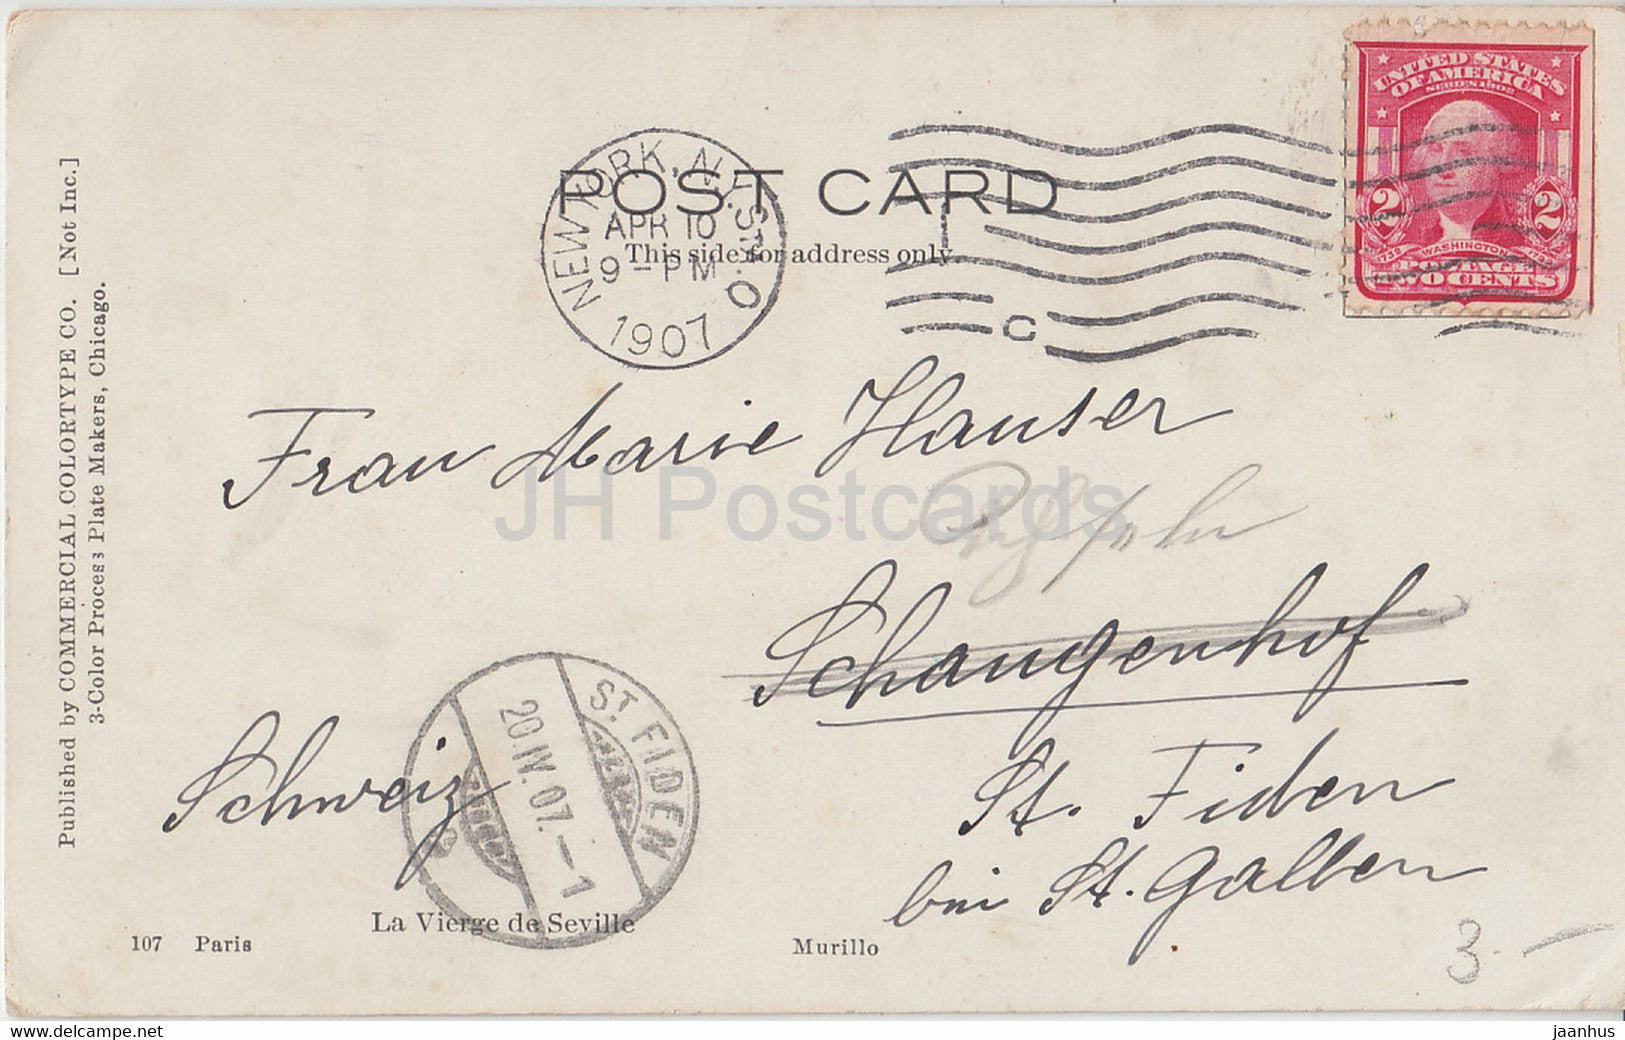 POST CARD
This side for address only.
NEW YORK, N.Y. STA. O
APR 10
9-PM
1907
C
UNITED STATES
OF AMERICA
SERIES 1902
2 2
1732 WASHINGTON 1799
POSTAGE
TWO CENTS
Frau Marie Hauser
Schaugenhof
St. Fiden
bei St. Gallen
Schweiz
ST. FIDEN
20.IV.07.-1
3.-
Published by COMMERCIAL COLORTYPE CO. [Not Inc.]
3-Color Process Plate Makers, Chicago.
La Vierge de Seville
107 Paris
Murillo
JH Postcards
www.delcampe.net
jaanhus